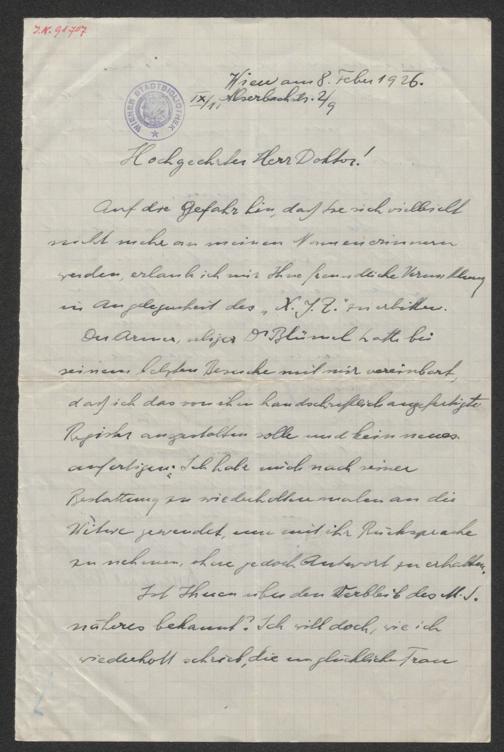 I.N. 91707
WIENER STADTBIBLIOTHEK
Wien am 8. Feber 1926.
IX/1, Alserbachstr. 2/9
Hochgeehrter Herr Doktor!
Auf die Gefahr hin, daß Sie sich vielleicht
nicht mehr an meinen Namen erinnern
werden, erlaub ich mir Ihre freundliche Vermittlung
in Angelegenheit des „X. J. Z." zu erbitten.
Der Arme, selige Dr Blümel hatte bei
seinem letzten Besuche mit mir vereinbart,
daß ich das von ihm handschriftlich angefertigte
Register ausgestalten solle und kein neues
anfertigen. Ich habe mich nach seiner
Bestattung zu wiederholtenmalen an die
Witwe gewendet, um mit ihr Rücksprache
zu nehmen, ohne jedoch Antwort zu erhalten.
Ist Ihnen über den Verbleib des M. S.
näheres bekannt? Ich will doch, wie ich
wiederholt schrieb, die unglückliche Frau